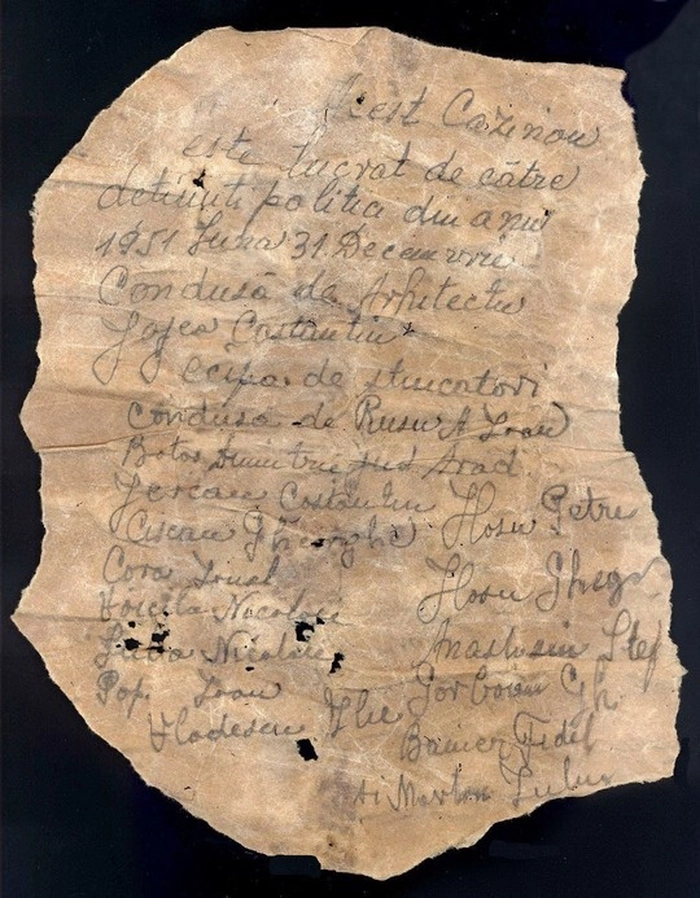 Acest Cazinou
este lucrat de către
detinuti politici din anii
1951 Luna 31 Decemvrie
Condusă de Arhitectu
Joja Costantin
Ecipa de stucatori
Condusă de Rusu A Ioan
Botos Dumitru jud Arad
Jercau Costantin
Ciscau Gheorghe
Cora Ionel
Voicila Nicolaie
Nicolaie
Pop Ioan
Vladescu Ilie
Hosu Petre
Hosu Gheg
Anastasiu Stef
Gorbovan Gh
Fidel
si Marton Iuliu